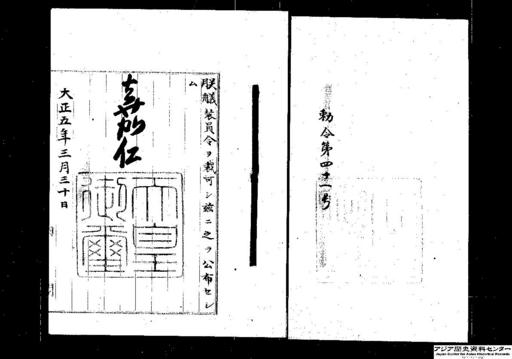 勅令第四十一号
朕艤装員令ヲ裁可シ茲ニ之ヲ公布セシ
ム
嘉仁
天皇
御璽
大正五年三月三十日
アジア歴史資料センター
Japan Center for Asian Historical Records